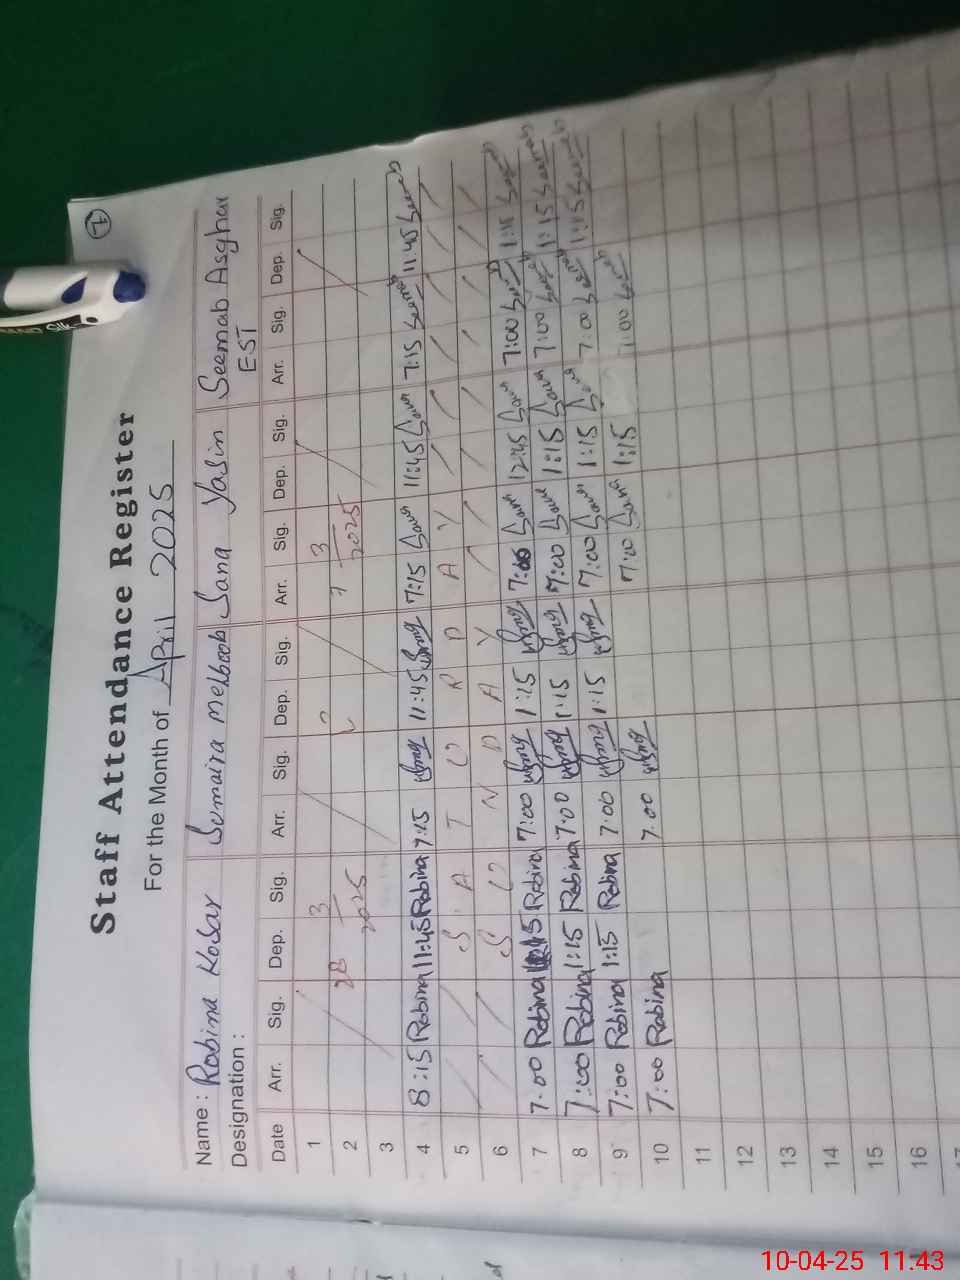 1
Staff Attendance Register
For the Month of April 2025
Name : Robina Kosar Sumaira mehboob Sana Yasin Seemab Asghar
Designation : EST
Date Arr. Sig. Dep. Sig. Arr. Sig. Dep. Sig. Arr. Sig. Dep. Sig. Arr. Sig. Dep. Sig.
1 3 3
2 28 2025 7 2025
3
4 8:15 Robina 11:45 Robina 7:15 11:45 7:15 Sana 11:45 Sana 7:15 Seemab 11:45 Seemab
5 S A T U R D A Y
6 S U N D A Y
7 7:00 Robina Robina 7:00 1:15 7:00 Sana 12:45 Sana 7:00 Seemab 1:15 Seemab
8 7:00 Robina 1:15 Robina 7:00 1:15 7:00 Sana 1:15 Sana 7:00 Seemab 1:15 Seemab
9 7:00 Robina 1:15 Robina 7:00 1:15 7:00 Sana 1:15 Sana 7:00 Seemab 1:15 Seemab
10 7:00 Robina 7:00 7:00 Sana 1:15 7:00 Seemab
11
12
13
14
15
16
17
10-04-25 11:43